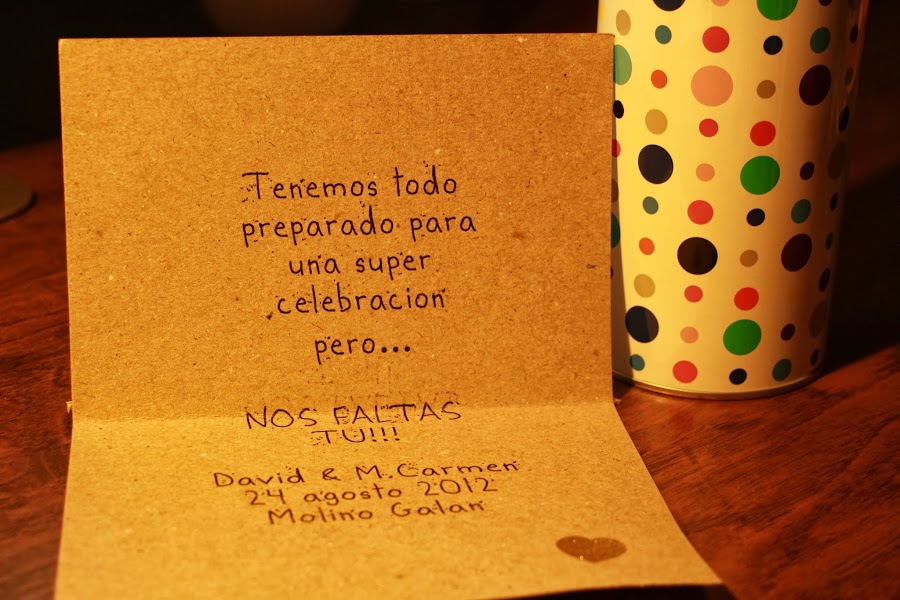 Tenemos todo
preparado para
una super
celebracion
pero...
NOS FALTAS
TU!!!
David & M.Carmen
24 agosto 2012
Molino Galan